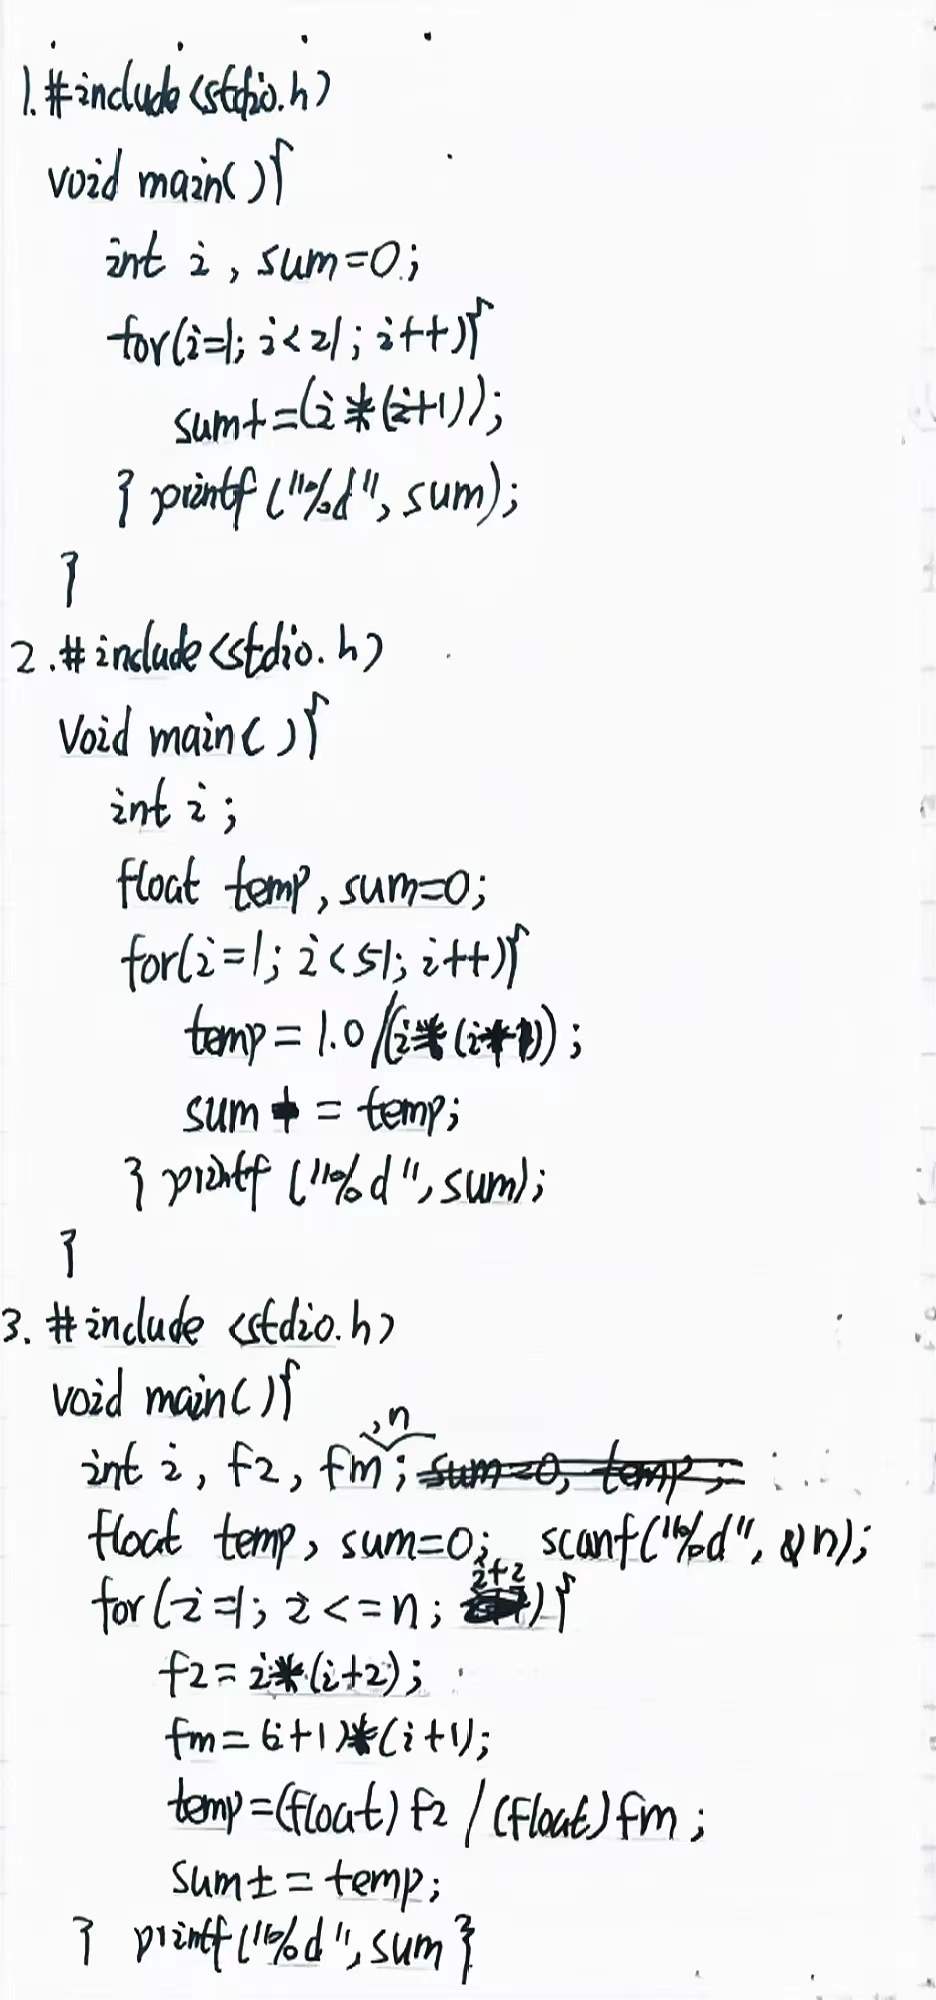 1. #include<stdio.h>
void main(){
int i, sum=0;
for(i=1; i<21; i++){
sum+=(i*(i+1));
} printf("%d", sum);
}
2. #include<stdio.h>
Void main(){
int i;
float temp, sum=0;
for(i=1; i<51; i++){
temp=1.0/(i*(i+1));
sum += temp;
} printf("%d", sum);
}
3. #include <stdio.h>
void main(){
,n
int i, fz, fm; sum=0, temp;
float temp, sum=0; scanf("%d", &n);
i+2
for(i=1; i<=n; ){
fz=i*(i+2);
fm=(i+1)*(i+1);
temp=(float)fz/(float)fm;
sum+=temp;
} printf("%d", sum }